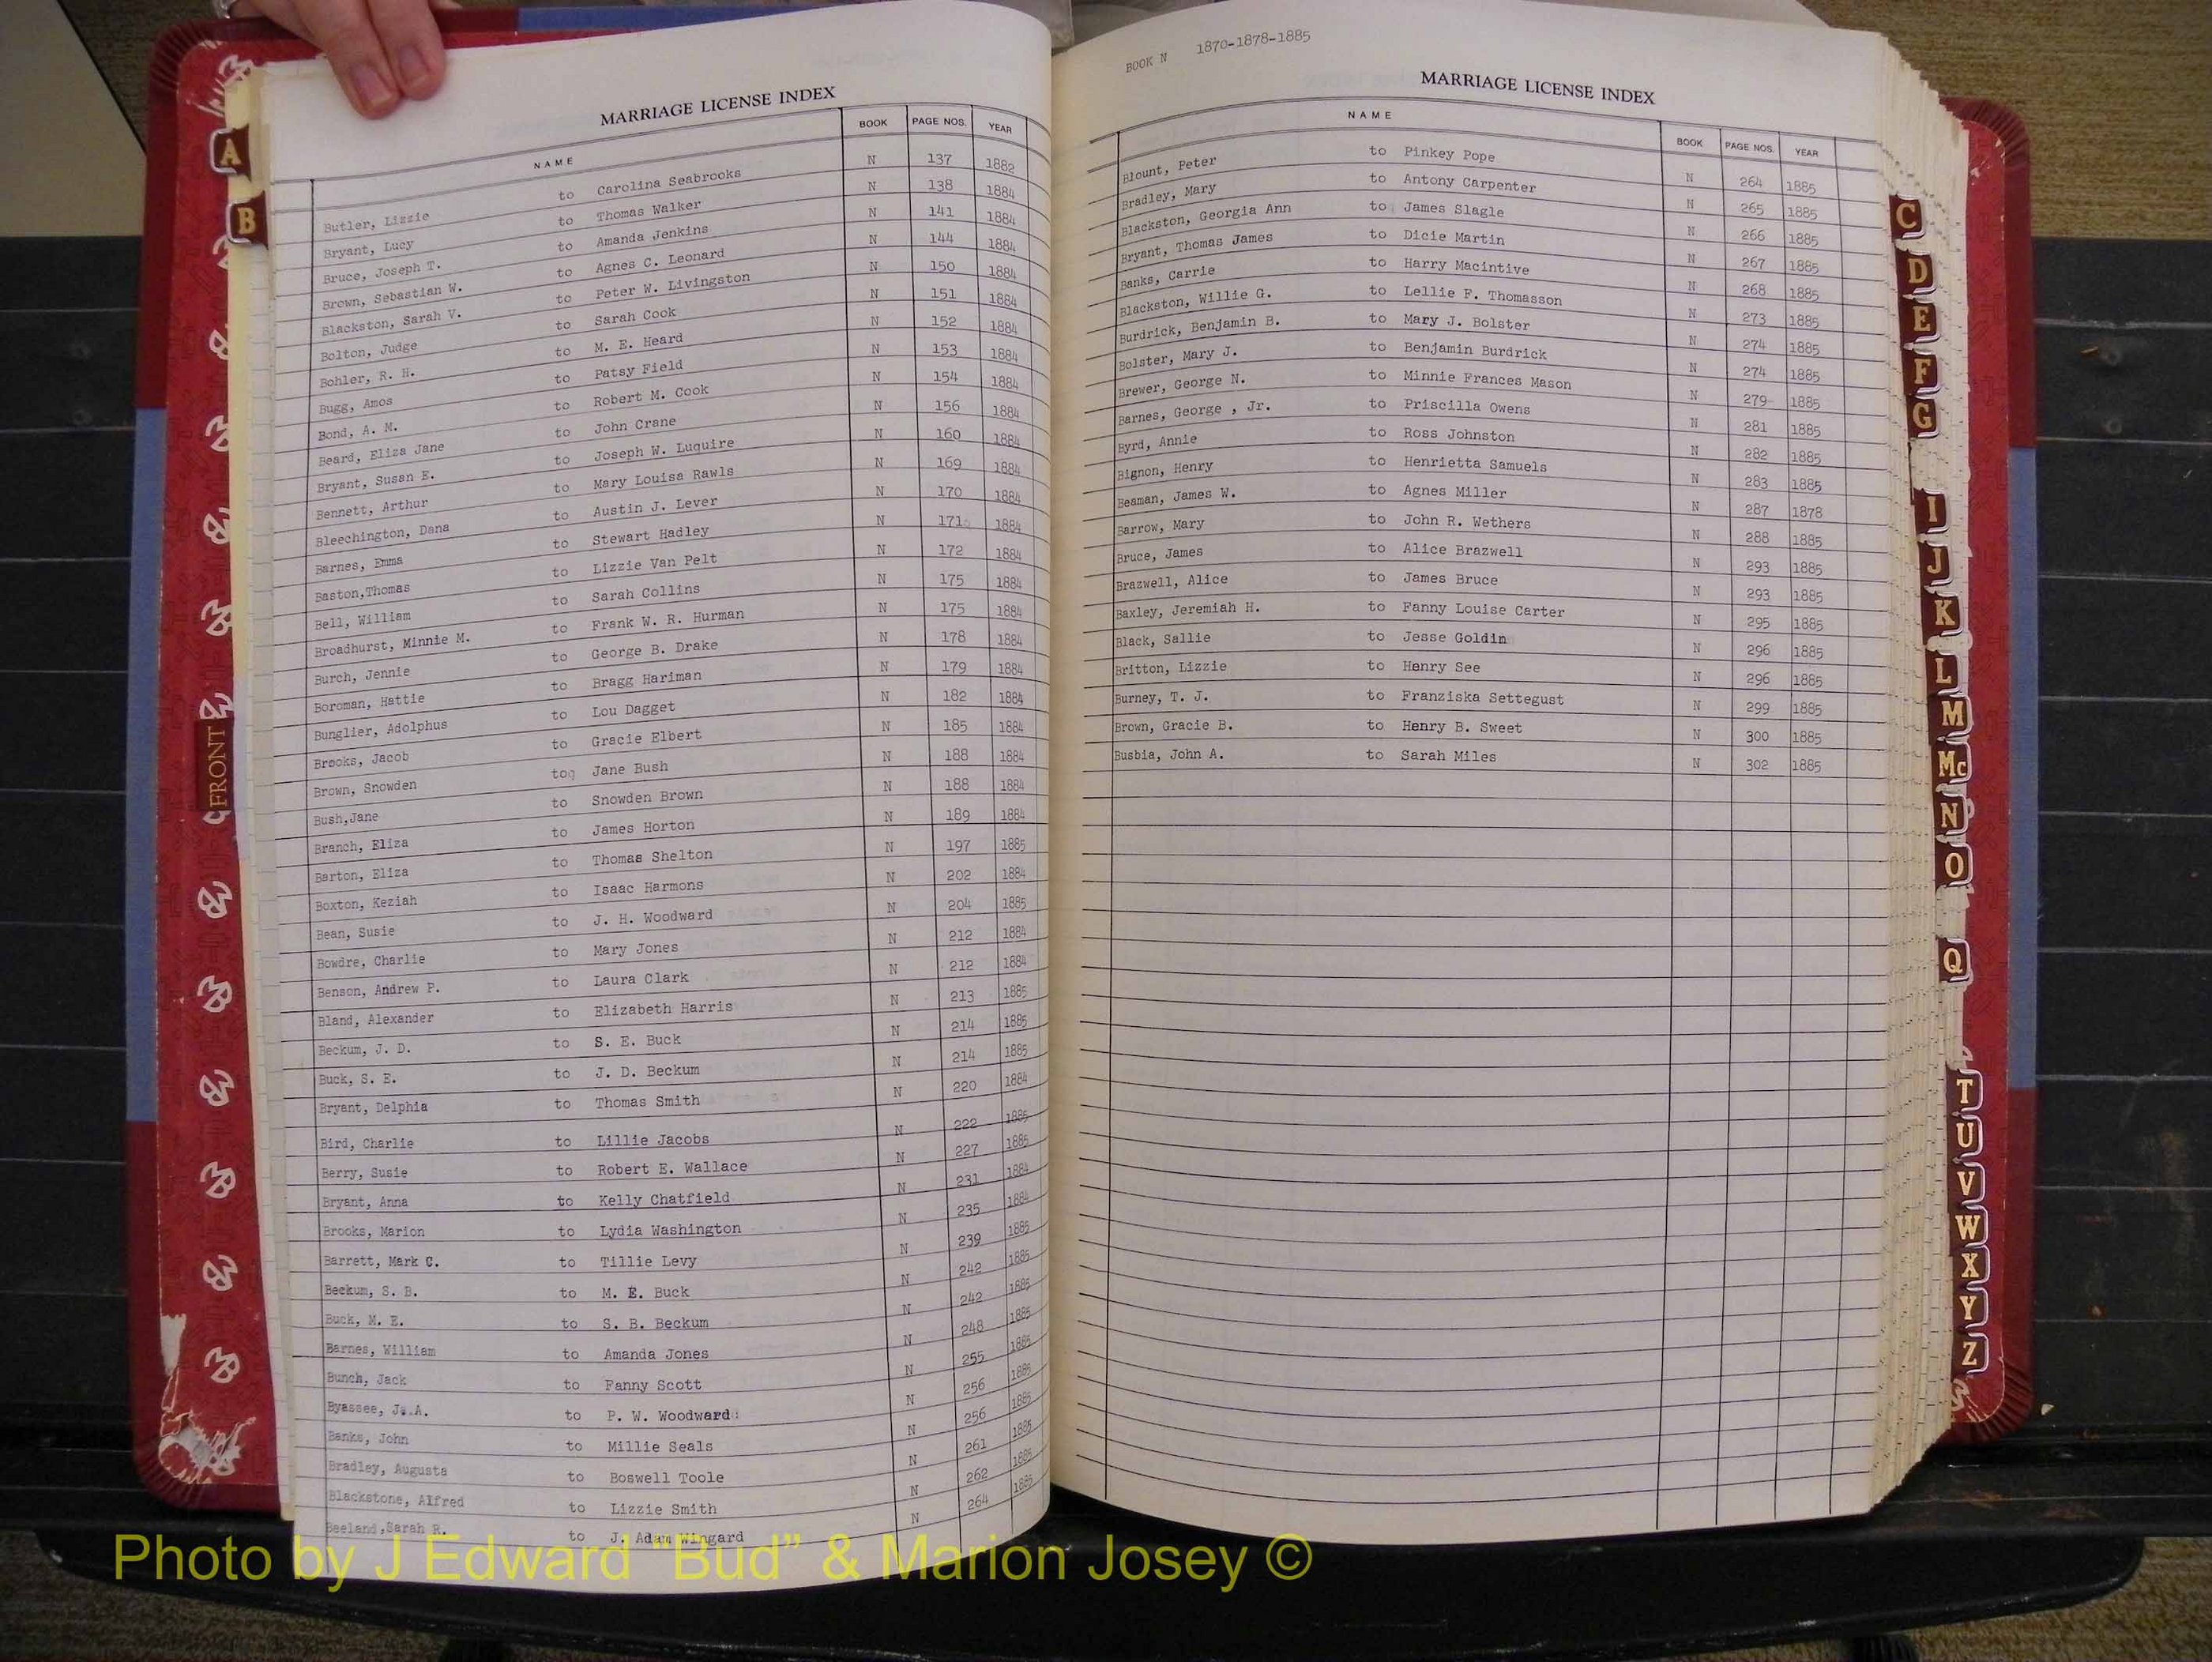 MARRIAGE LICENSE INDEX
NAME BOOK PAGE NOS. YEAR
Butler, Lizzie to Carolina Seabrooks N 137 1882
Bryant, Lucy to Thomas Walker N 138 1884
Bruce, Joseph T. to Amanda Jenkins N 141 1884
Brown, Sebastian W. to Agnes C. Leonard N 144 1884
Blackston, Sarah V. to Peter W. Livingston N 150 1884
Bolton, Judge to Sarah Cook N 151 1884
Bohler, R. H. to M. E. Heard N 152 1884
Bugg, Amos to Patsy Field N 153 1884
Bond, A. M. to Robert M. Cook N 154 1884
Beard, Eliza Jane to John Crane N 156 1884
Bryant, Susan E. to Joseph W. Luquire N 160 1884
Bennett, Arthur to Mary Louisa Rawls N 169 1884
Bleechington, Dana to Austin J. Lever N 170 1884
Barnes, Emma to Stewart Hadley N 171 1884
Baston,Thomas to Lizzie Van Pelt N 172 1884
Bell, William to Sarah Collins N 175 1884
Broadhurst, Minnie M. to Frank W. R. Hurman N 175 1884
Burch, Jennie to George B. Drake N 178 1884
Boroman, Hattie to Bragg Hariman N 179 1884
Bunglier, Adolphus to Lou Dagget N 182 1884
Brooks, Jacob to Gracie Elbert N 185 1884
Brown, Snowden to Jane Bush N 188 1884
Bush,Jane to Snowden Brown N 188 1884
Branch, Eliza to James Horton N 189 1884
Barton, Eliza to Thomas Shelton N 197 1885
Boxton, Keziah to Isaac Harmons N 202 1884
Bean, Susie to J. H. Woodward N 204 1885
Bowdre, Charlie to Mary Jones N 212 1884
Benson, Andrew P. to Laura Clark N 212 1884
Bland, Alexander to Elizabeth Harris N 213 1885
Beckum, J. D. to S. E. Buck N 214 1885
Buck, S. E. to J. D. Beckum N 214 1885
Bryant, Delphia to Thomas Smith N 220 1884
Bird, Charlie to Lillie Jacobs N 222 1885
Berry, Susie to Robert E. Wallace N 227 1885
Bryant, Anna to Kelly Chatfield N 231 1884
Brooks, Marion to Lydia Washington N 235 1884
Barrett, Mark C. to Tillie Levy N 239 1885
Beckum, S. B. to M. E. Buck N 242 1885
Buck, M. E. to S. B. Beckum N 242 1885
Barnes, William to Amanda Jones N 248 1885
Bunch, Jack to Fanny Scott N 255 1885
Byassee, J. A. to P. W. Woodward N 256 1885
Banks, John to Millie Seals N 256 1885
Bradley, Augusta to Boswell Toole N 261 1885
Blackstone, Alfred to Lizzie Smith N 262 1885
Beeland,Sarah R. to J. Adam Wingard N 264 1885
BOOK N 1870-1878-1885
MARRIAGE LICENSE INDEX
NAME BOOK PAGE NOS. YEAR
Blount, Peter to Pinkey Pope N 264 1885
Bradley, Mary to Antony Carpenter N 265 1885
Blackston, Georgia Ann to James Slagle N 266 1885
Bryant, Thomas James to Dicie Martin N 267 1885
Banks, Carrie to Harry Macintive N 268 1885
Blackston, Willie G. to Lellie F. Thomasson N 273 1885
Burdrick, Benjamin B. to Mary J. Bolster N 274 1885
Bolster, Mary J. to Benjamin Burdrick N 274 1885
Brewer, George N. to Minnie Frances Mason N 279 1885
Barnes, George , Jr. to Priscilla Owens N 281 1885
Byrd, Annie to Ross Johnston N 282 1885
Bignon, Henry to Henrietta Samuels N 283 1885
Beaman, James W. to Agnes Miller N 287 1878
Barrow, Mary to John R. Wethers N 288 1885
Bruce, James to Alice Brazwell N 293 1885
Brazwell, Alice to James Bruce N 293 1885
Baxley, Jeremiah H. to Fanny Louise Carter N 295 1885
Black, Sallie to Jesse Goldin N 296 1885
Britton, Lizzie to Henry See N 296 1885
Burney, T. J. to Franziska Settegust N 299 1885
Brown, Gracie B. to Henry B. Sweet N 300 1885
Busbia, John A. to Sarah Miles N 302 1885
A
B
FRONT
C
D
E
F
G
I
J
K
L
M
Mc
N
O
Q
T
U
V
W
X
Y
Z
Photo by J Edward "Bud" & Marion Josey ©